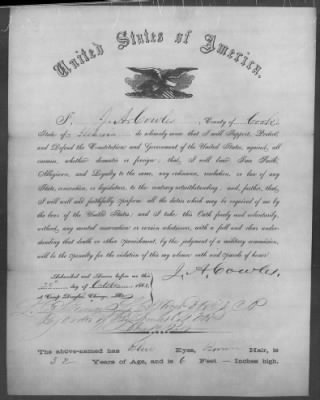 United States of America.
I, J. A. Cowles, County of Cook,
State of do solemnly swear that I will Support, Protect,
and Defend the Constitution and Government of the United States, against all
enemies, whether domestic or foreign; that I will bear True Faith,
Allegiance, and Loyalty to the same, any ordinance, resolution, or law of any
State, convention, or legislature, to the contrary notwithstanding; and, further, that
I will well and faithfully perform all the duties which may be required of me by
the laws of the United States; and I take this Oath freely and voluntarily,
without any mental reservation or evasion whatsoever, with a full and clear under-
standing that death or other punishment, by the judgment of a military commission,
will be the penalty for the violation of this my solemn oath and parole of honor.
J. A. Cowles.
Subscribed and Sworn before me this
day of 186
at Camp Douglas, Chicago, Ills.
The above-named has Blue Eyes, Brown Hair, is
32 Years of Age, and is 6 Feet — Inches high.